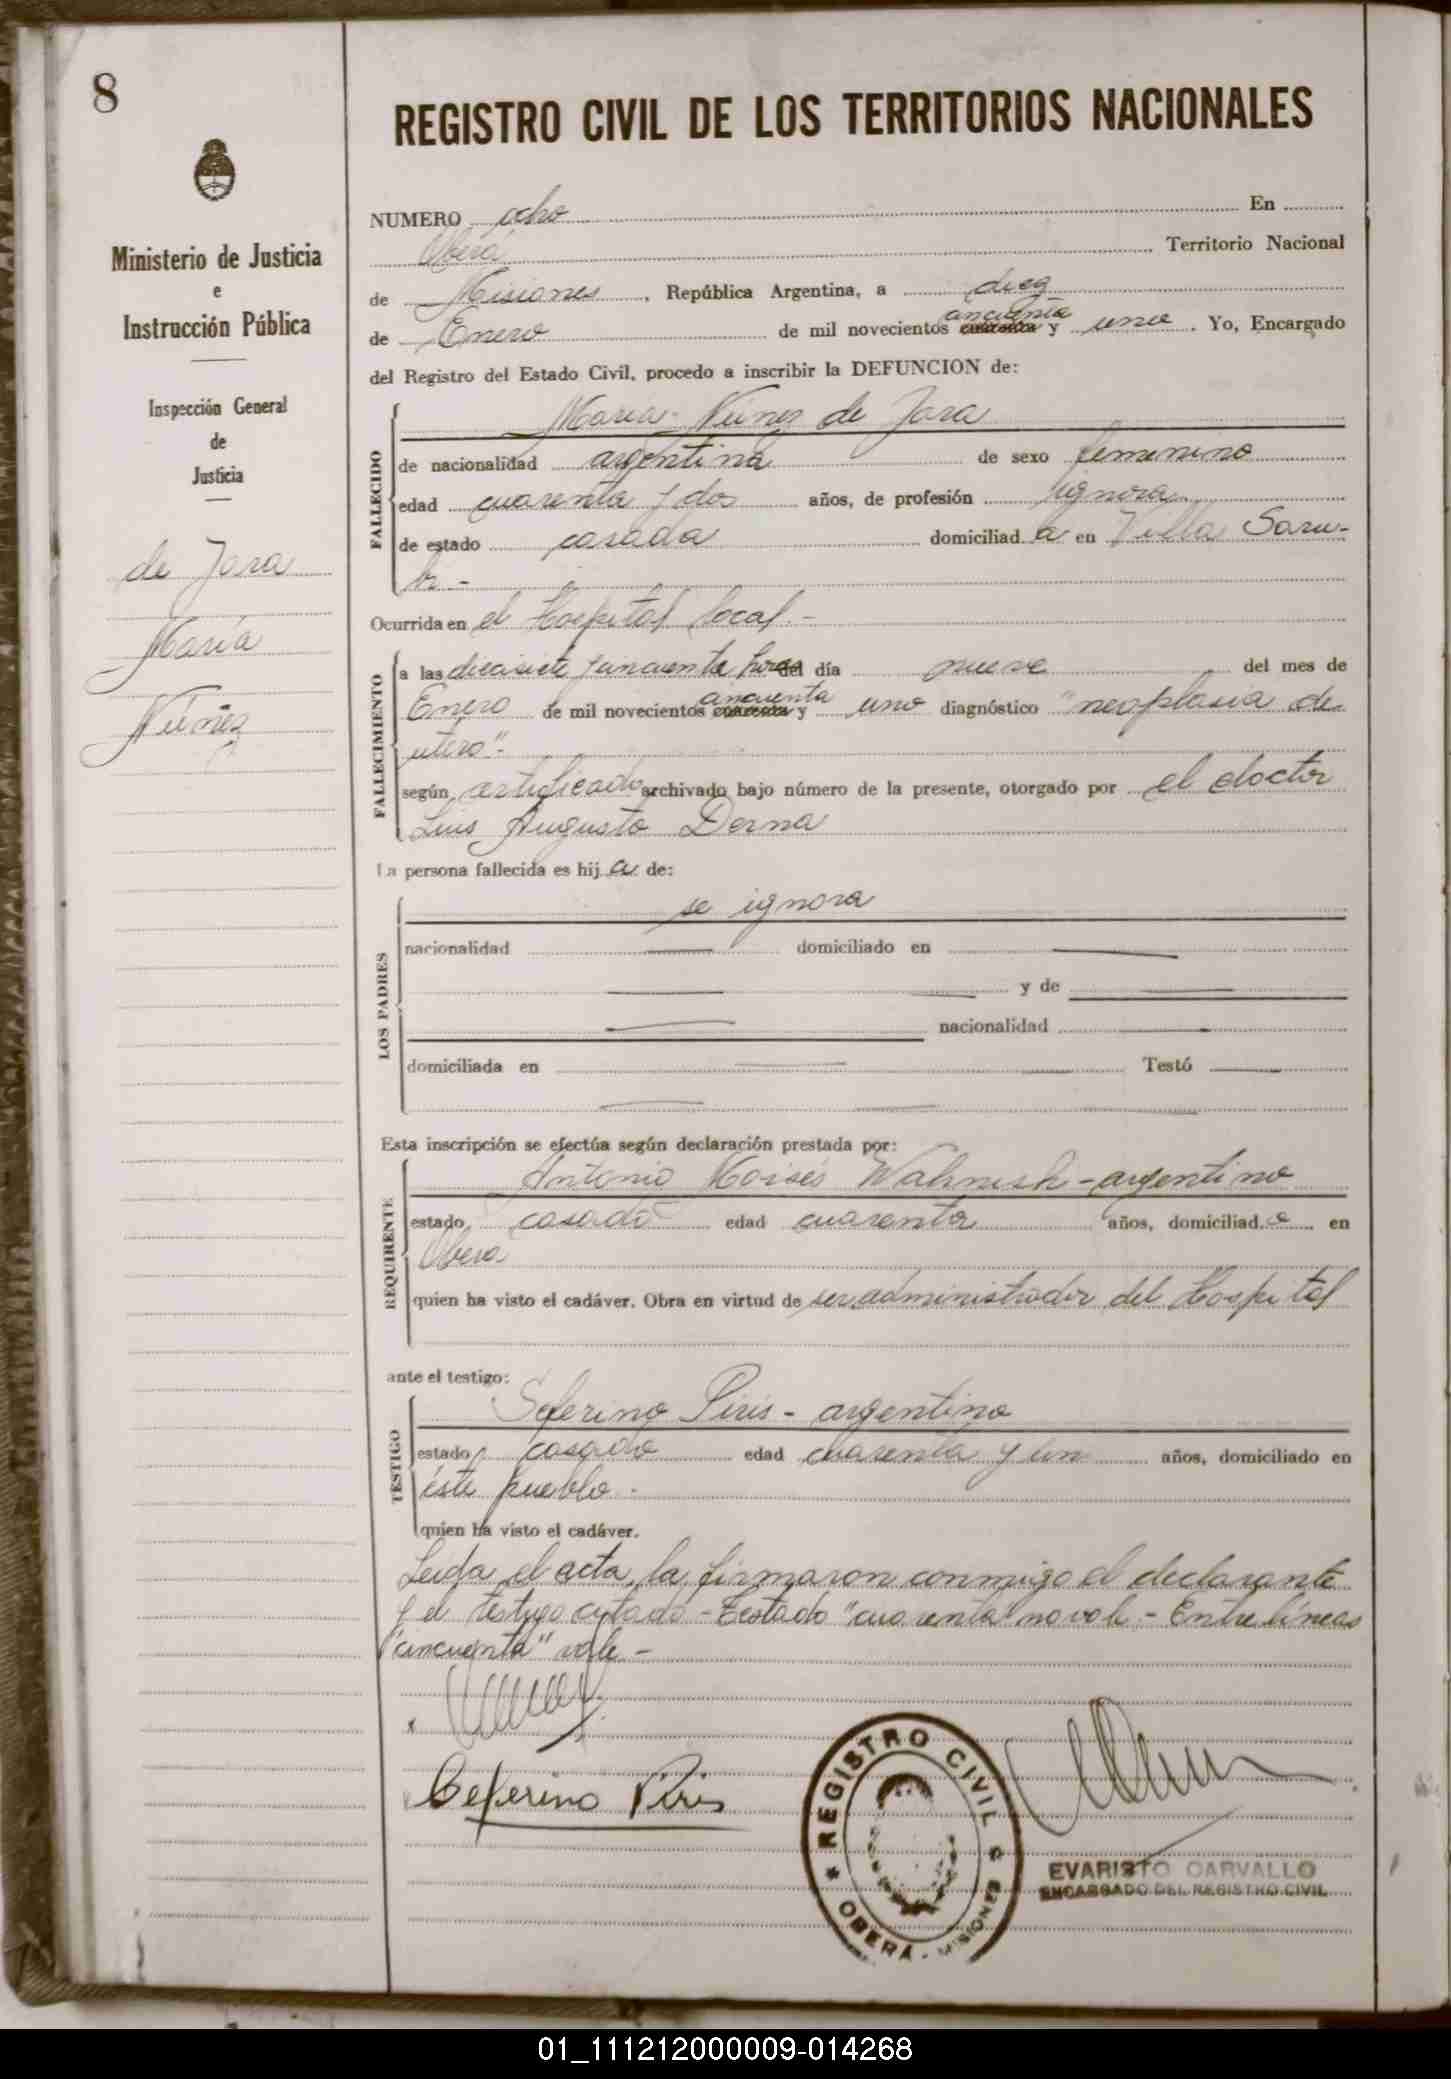 8
Ministerio de Justicia
e
Instrucción Pública
Inspección General
de
Justicia
de Jara
María
Núñez
REGISTRO CIVIL DE LOS TERRITORIOS NACIONALES
NUMERO ocho En
Oberá Territorio Nacional
de Misiones, República Argentina, a diez
de Enero de mil novecientos cuarenta cincuenta y uno. Yo, Encargado
del Registro del Estado Civil, procedo a inscribir la DEFUNCION de:
FALLECIDO
María Núñez de Jara
de nacionalidad argentina de sexo femenino
edad cuarenta y dos años, de profesión ignora
de estado casada domiciliad a en Villa Saru-
bi -
Ocurrida en el Hospital local. -
FALLECIMIENTO
a las diecisiete y cincuenta horas del día nueve del mes de
Enero de mil novecientos cuarenta cincuenta y uno diagnóstico "neoplasia de
utero"-
según certificado archivado bajo número de la presente, otorgado por el doctor
Luis Augusto Derna
La persona fallecida es hij a de:
LOS PADRES
se ignora
nacionalidad domiciliado en
y de
nacionalidad
domiciliada en Testó
Esta inscripción se efectúa según declaración prestada por:
REQUIRENTE
Antonio Moisés Wahnish - argentino
estado casado edad cuarenta años, domiciliad o en
Oberá
quien ha visto el cadáver. Obra en virtud de ser administrador del Hospital
ante el testigo:
TESTIGO
Seferino Piris - argentino
estado casado edad cuarenta y un años, domiciliado en
éste pueblo.
quien ha visto el cadáver.
Leida el acta, la firmaron conmigo el declarante
y el testigo citado - Testado "cuarenta" no vale - Entre líneas
"cincuenta" vale -
Ceferino Piris
REGISTRO CIVIL
OBERÁ - MISIONES
EVARISTO CARVALLO
ENCARGADO DEL REGISTRO CIVIL
01_111212000009-014268